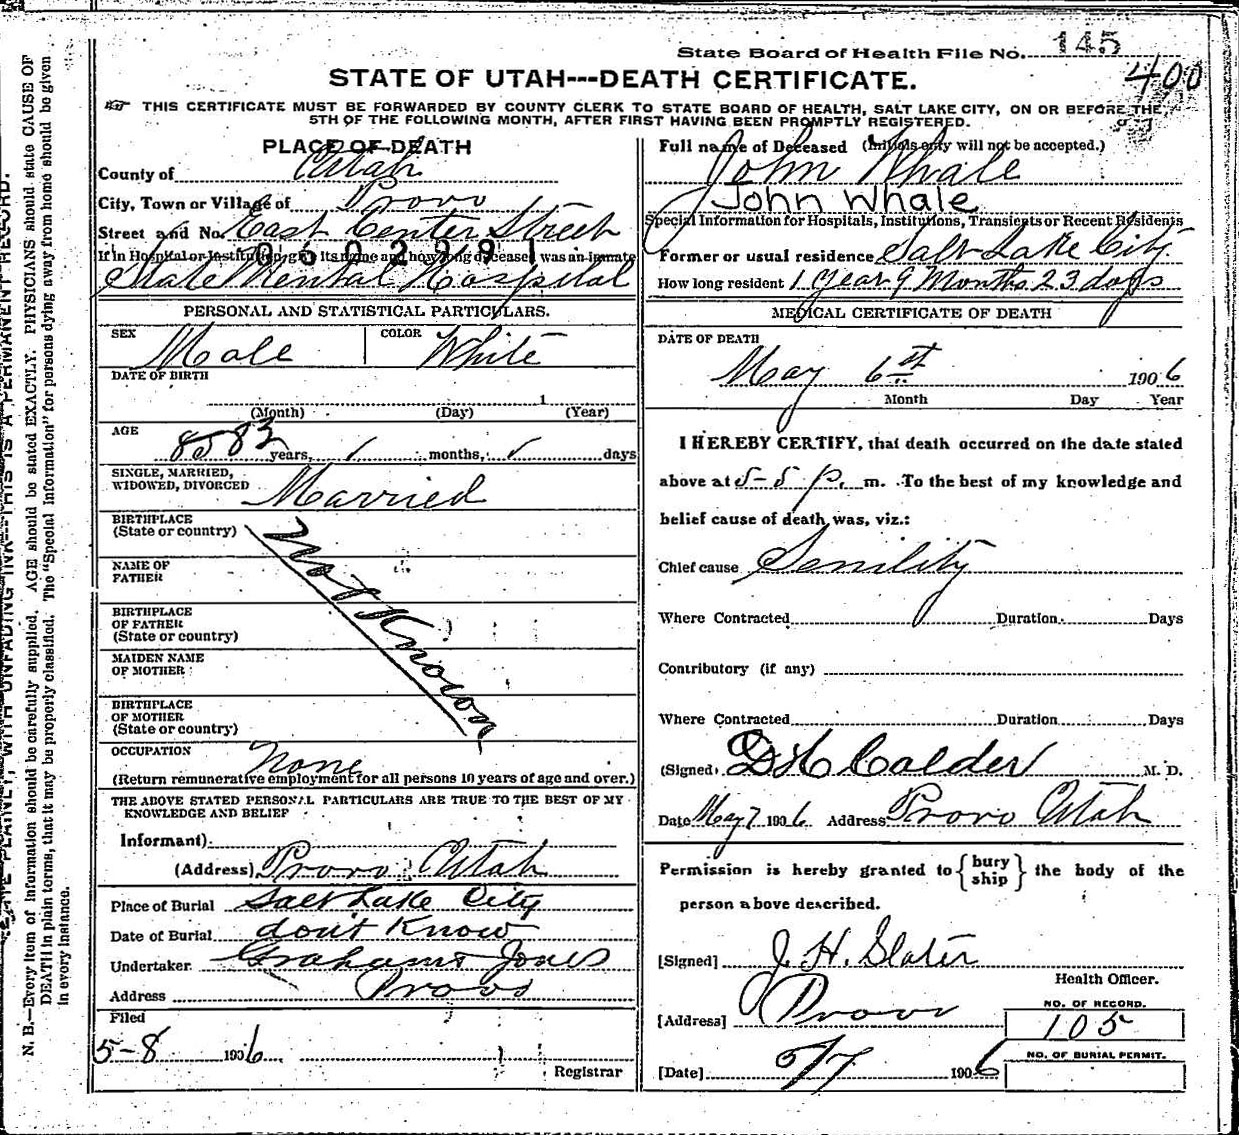 State Board of Health File No. 145
400
STATE OF UTAH---DEATH CERTIFICATE.
THIS CERTIFICATE MUST BE FORWARDED BY COUNTY CLERK TO STATE BOARD OF HEALTH, SALT LAKE CITY, ON OR BEFORE THE
5TH OF THE FOLLOWING MONTH, AFTER FIRST HAVING BEEN PROMPTLY REGISTERED.
PLACE OF DEATH
County of Utah
City, Town or Village of Provo
Street and No. East Center Street
If in Hospital or Institution, give its name and how long deceased was an inmate
State Mental Hospital
PERSONAL AND STATISTICAL PARTICULARS.
SEX Male COLOR White
DATE OF BIRTH
1
(Month) (Day) (Year)
AGE 85 83 years, months, days
SINGLE, MARRIED,
WIDOWED, DIVORCED Married
BIRTHPLACE
(State or country)
NAME OF
FATHER
BIRTHPLACE
OF FATHER
(State or country)
MAIDEN NAME
OF MOTHER
BIRTHPLACE
OF MOTHER
(State or country)
Not Known
OCCUPATION None
(Return remunerative employment for all persons 10 years of age and over.)
THE ABOVE STATED PERSONAL PARTICULARS ARE TRUE TO THE BEST OF MY
KNOWLEDGE AND BELIEF
Informant)
(Address) Provo Utah
Place of Burial Salt Lake City
Date of Burial dont Know
Undertaker Graham & Jones
Address Provo
Filed
5-8 1906
Registrar
Full name of Deceased (Initials only will not be accepted.)
John Whale
John Whale
Special Information for Hospitals, Institutions, Transients or Recent Residents
Former or usual residence Salt Lake City.
How long resident 1 year 9 Months 23 days
MEDICAL CERTIFICATE OF DEATH
DATE OF DEATH
May 6st 1906
Month Day Year
I HEREBY CERTIFY, that death occurred on the date stated
above at 5-5 p. m. To the best of my knowledge and
belief cause of death was, viz.:
Chief cause Senility
Where Contracted Duration Days
Contributory (if any)
Where Contracted Duration Days
(Signed) D H Calder M. D.
Date May 7 1906 Address Provo Utah
Permission is hereby granted to {bury ship} the body of the
person above described.
[Signed] J. H. Slater
Health Officer.
[Address] Provo
NO. OF RECORD.
105
NO. OF BURIAL PERMIT.
[Date] 5/7 1906
N. B.—Every item of information should be carefully supplied. AGE should be stated EXACTLY. PHYSICIANS should state CAUSE OF
DEATH in plain terms, that it may be properly classified. The "Special Information" for persons dying away from home should be given
in every instance.